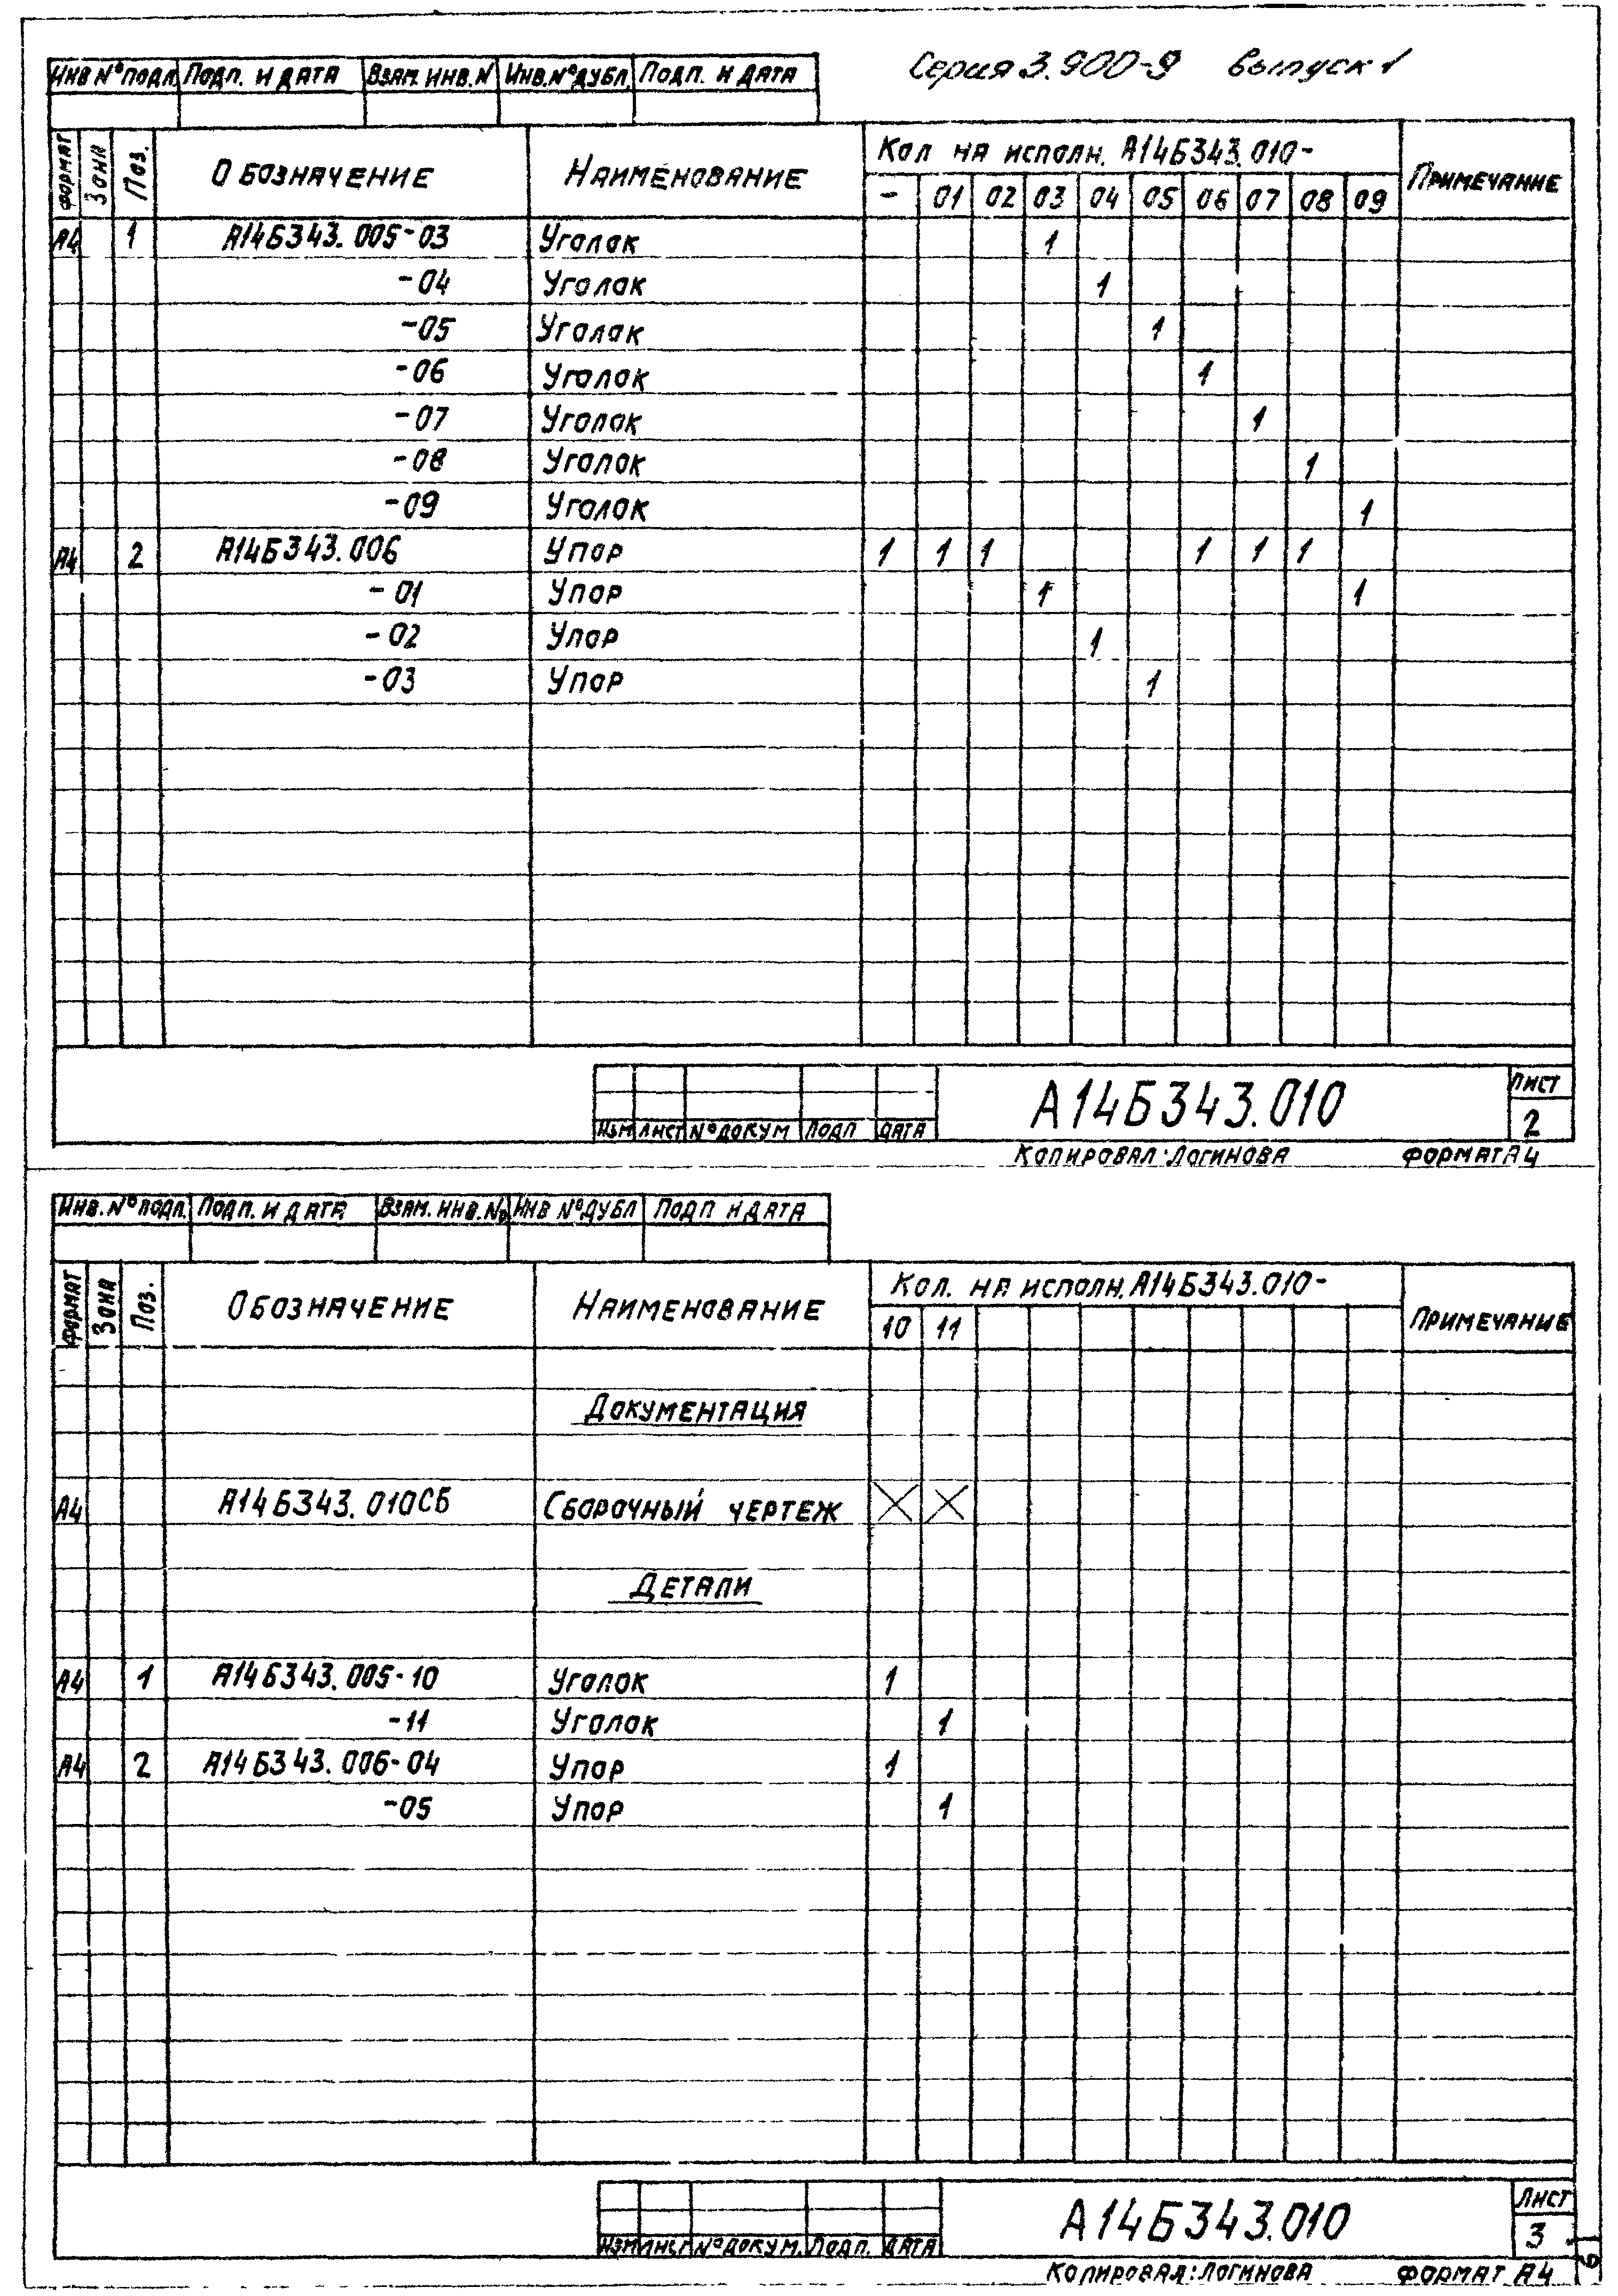 Серия 3.900-9 выпуск 1
Инв №подл. Подп. и дата Взам. инв. N Инв. №дубл. Подп. и дата
Формат Зона Поз. Обозначение Наименование Кол на исполн. А14Б343.010- Примечание
- 01 02 03 04 05 06 07 08 09
А4 1 А14Б343.005-03 Уголок 1
-04 Уголок 1
-05 Уголок 1
-06 Уголок 1
-07 Уголок 1
-08 Уголок 1
-09 Уголок 1
А4 2 А14Б343.006 Упор 1 1 1 1 1 1
-01 Упор 1 1
-02 Упор 1
-03 Упор 1
Изм Лист № докум Подп Дата А14Б343.010 Лист 2
Копировал: Логинова Формат А4
Инв. №подл. Подп. и дата Взам. инв. № Инв №дубл Подп и дата
Формат Зона Поз. Обозначение Наименование Кол. на исполн. А14Б343.010- Примечание
10 11
Документация
А4 А14Б343.010СБ Сборочный чертеж X X
Детали
А4 1 А14Б343.005-10 Уголок 1
-11 Уголок 1
А4 2 А14Б343.006-04 Упор 1
-05 Упор 1
Изм Лист № докум. Подп. Дата А14Б343.010 Лист 3
Копировал: Логинова Формат А4